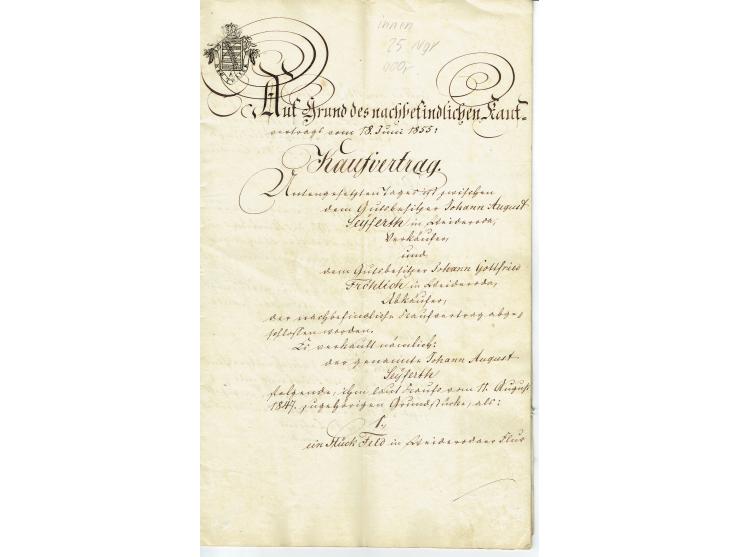 innen
25 Ngr
Auf Grund des nachbefindlichen Kauf-
vertrags vom 18. Juni 1855:
Kaufvertrag.
Untengesetzten Tages ist zwischen
dem Gutsbesitzer Johann August
Seyferth in Weideroda,
Verkäufer,
und
dem Gutsbesitzer Johann Gottfried
Fröhlich in Weideroda,
Abkäufer,
der nachbefindliche Kaufvertrag abge-
schlossen worden.
Es verkauft nämlich:
der genannte Johann August
Seyferth
folgende, ihm laut Kaufs vom 11. August
1847. zugehörigen Grundstücke, als:
1.,
ein Stück Feld in Weiderodaer Flur